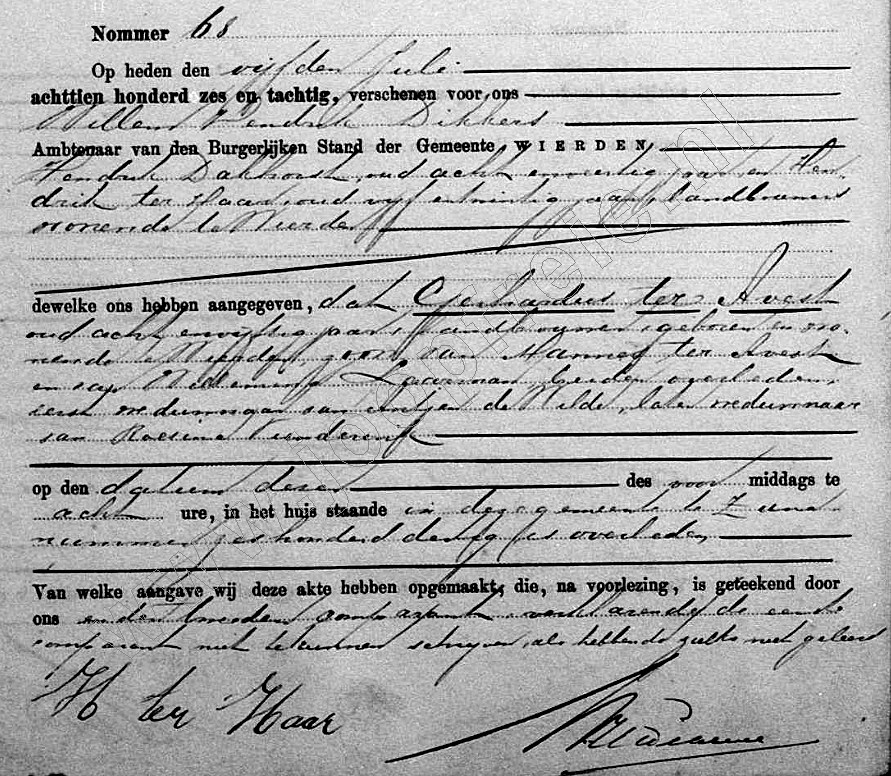 Nommer 68
Op heden den vijfden Juli
achttien honderd zes en tachtig, verschenen voor ons
Willem Hendrik Dikkers
Ambtenaar van den Burgerlijken Stand der Gemeente WIERDEN
Hendrik Dakhorst, oud acht en veertig jaar en Hen-
drik ter Haar, oud vijf en twintig jaar, landbouwers
wonende te Wierden
dewelke ons hebben aangegeven, dat Gerhardus ter Avest
oud acht en vijftig jaar, landbouwer, geboren en wo-
nende te Wierden, zoon van Mannes ter Avest
en van Willemina Laarman beiden overleden,
eerst weduwnaar van Antjen de Wilde, later weduwnaar
van Roesina
op den datum dezer des voor middags te
acht ure, in het huis staande in deze gemeente te Zuna
nummer zeshonderd dertig is overleden
Van welke aangave wij deze akte hebben opgemaakt, die, na voorlezing, is geteekend door
ons en den tweeden comparant, verklarende de eerste
comparant niet te kunnen schrijven, als hebbende zulks niet geleerd
H ter Haar
www.vosenpapfreie.nl